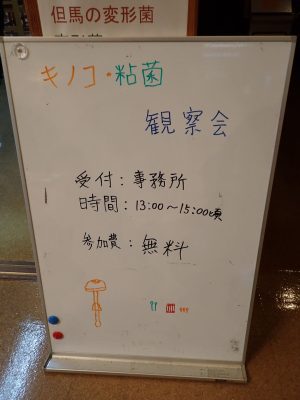 但馬の変形菌
キノコ・粘菌
観察会
受付：事務所
時間：13:00〜15:00頃
参加費：無料